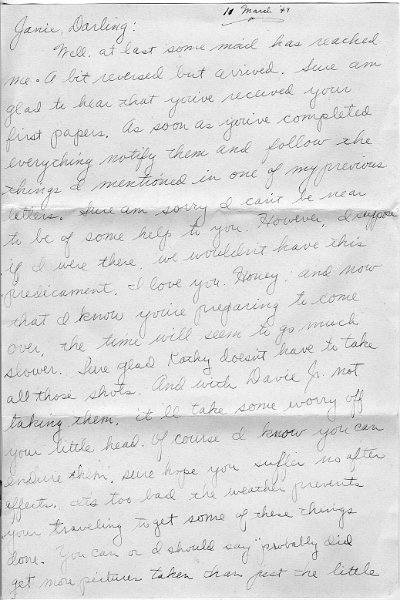 10 March 49
Janie, Darling:
Well, at last some mail has reached
me. A bit reversed but arrived. Sure am
glad to hear that you've received your
first papers. As soon as you've completed
everything notify them and follow the
things I mentioned in one of my previous
letters. Sure am sorry I can't be near
to be of some help to you. However, I suppose
if I were there, we wouldn't have this
predicament. I love you, Honey, and now
that I know you're preparing to come
over, the time will seem to go much
slower. Sure glad Kathy doesn't have to take
all those shots. And with Davie Jr. not
taking them, it'll take some worry off
your little head. Of course I know you can
endure them, sure hope you suffer no after
effects. It's too bad the weather prevents
your traveling to get some of these things
done. You can or I should say "probably did
get more pictures taken than just the little